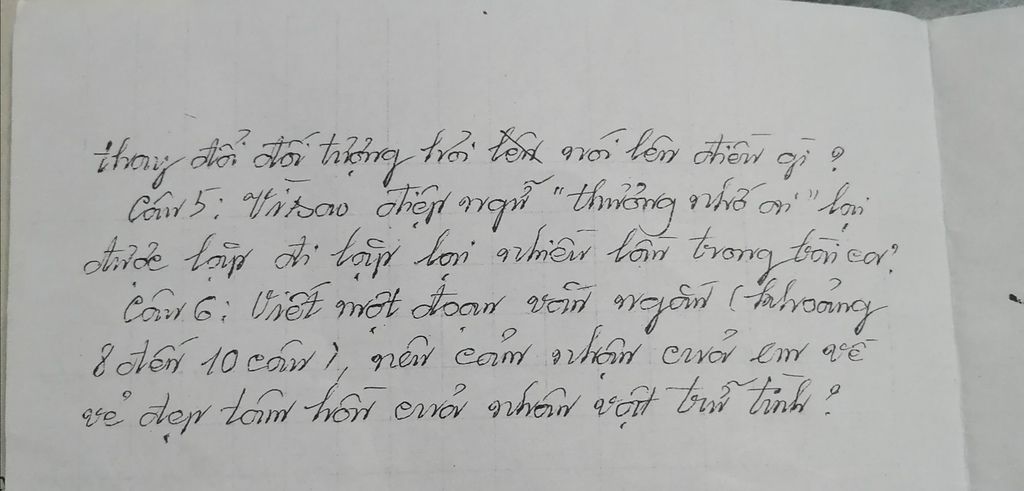 thay đổi đối tượng hỏi nói lên điều gì ?
Câu 5 : Vì sao điệp ngữ "thương nhớ ai" lại
được lặp đi lặp lại nhiều lần trong bài ca?
Câu 6 : Viết một đoạn văn ngắn ( khoảng
8 đến 10 câu ), nêu cảm nhận của em về
vẻ đẹp tâm hồn của nhân vật trữ tình ?